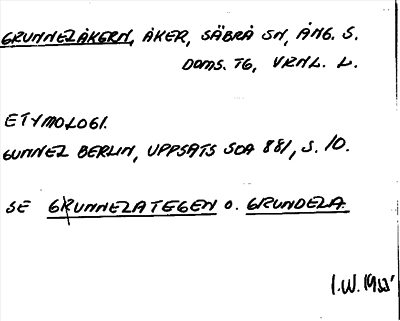 GRUNNELÅKERN, ÅKER, SÄBRÅ SN, ÅNG. S.
DOMS. TG, VRNL. L.
ETYMOLOGI.
GUNNEL BERLIN, UPPSATS SOA 881, S. 10.
SE GRUNNELATEGEN O. GRUNDELA.
I.W. 1983